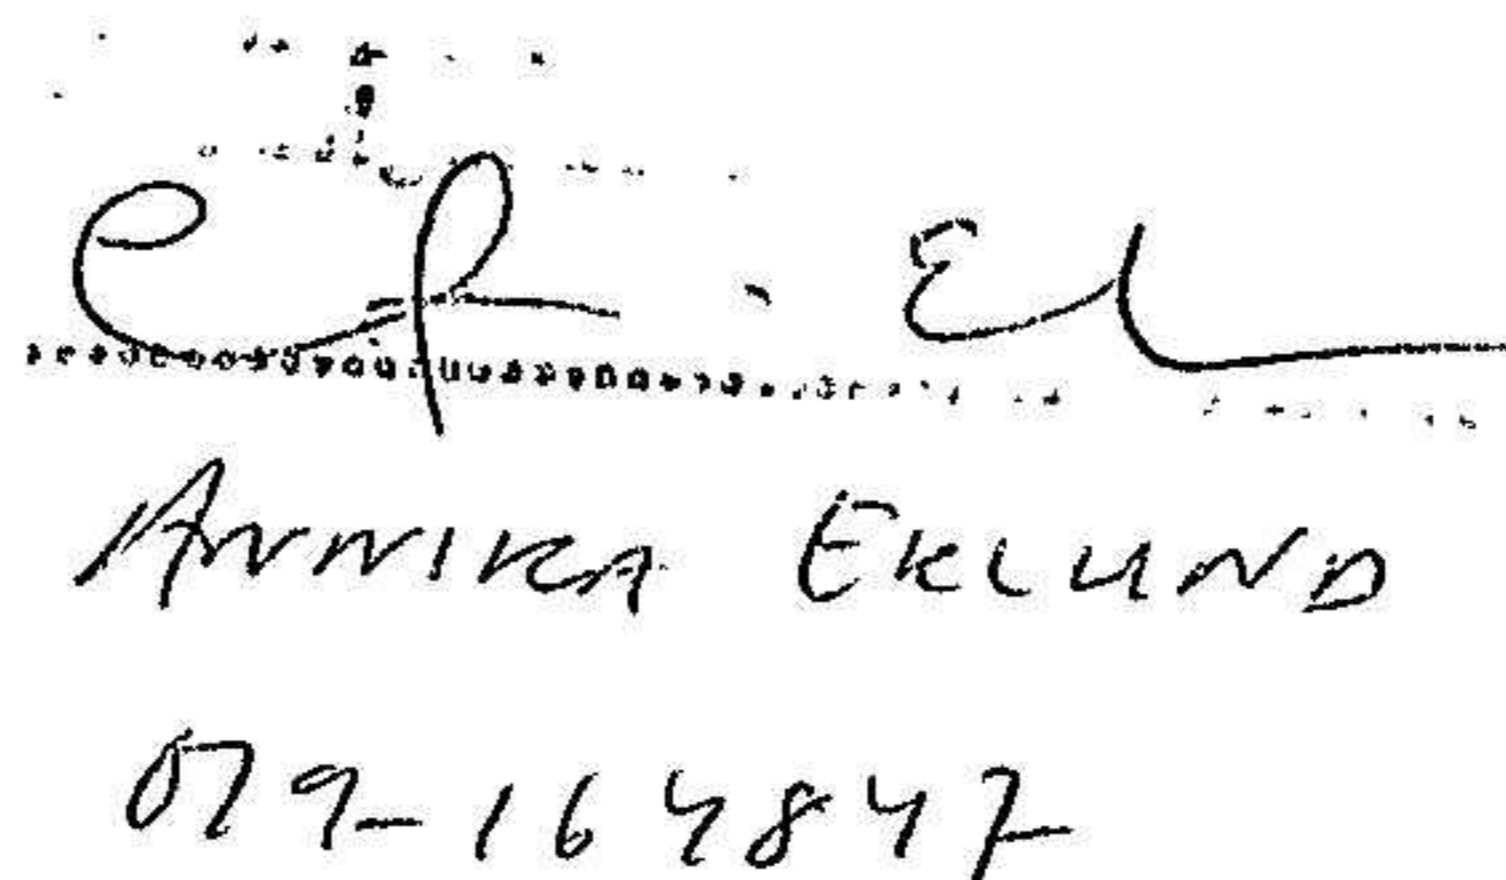 ANNIKA EKLUND
079-164847